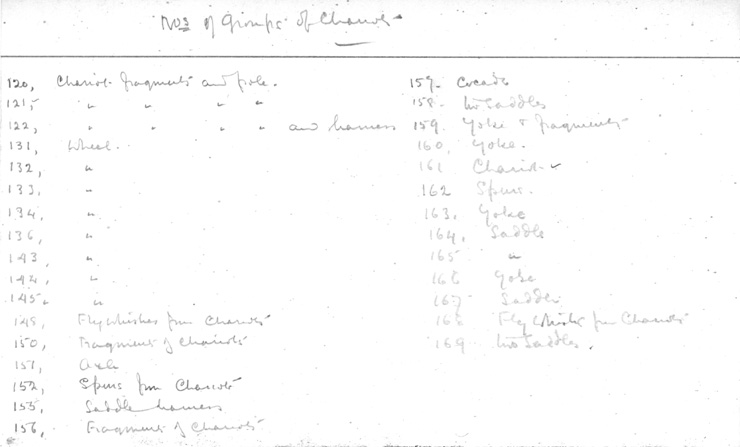 Nos of Groups of Chariots
120, Chariot fragments and pole.
121, " " " "
122, " " " " and harness
131, Wheel.
132, "
133, "
134, "
136, "
143, "
144, "
145, "
149, Flywhisks from Chariots
150, Fragments of Chariots
151, Axle
152, Spurs from Chariots
155, Saddle harness
156, Fragments of Chariots
157. Cocade
158. two Saddles
159. Yoke & fragments
160. Yoke.
161 Chariot
162 Spurs.
163. Yoke
164. Saddle
165 "
166 Yoke
167 Saddle
168 Fly Whisks from Chariots
169 two Saddles.